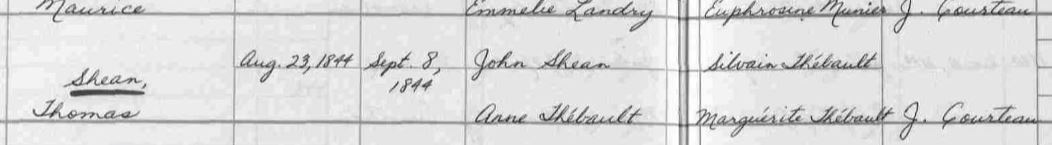 Maurice Emmelie Landry Euphrosine Munier J. Courteau
Aug. 23, 1844 Sept. 8, John Shean Silvain Thébault
Shean, 1844
Thomas Anne Thébault Marguérite Thébault J. Courteau